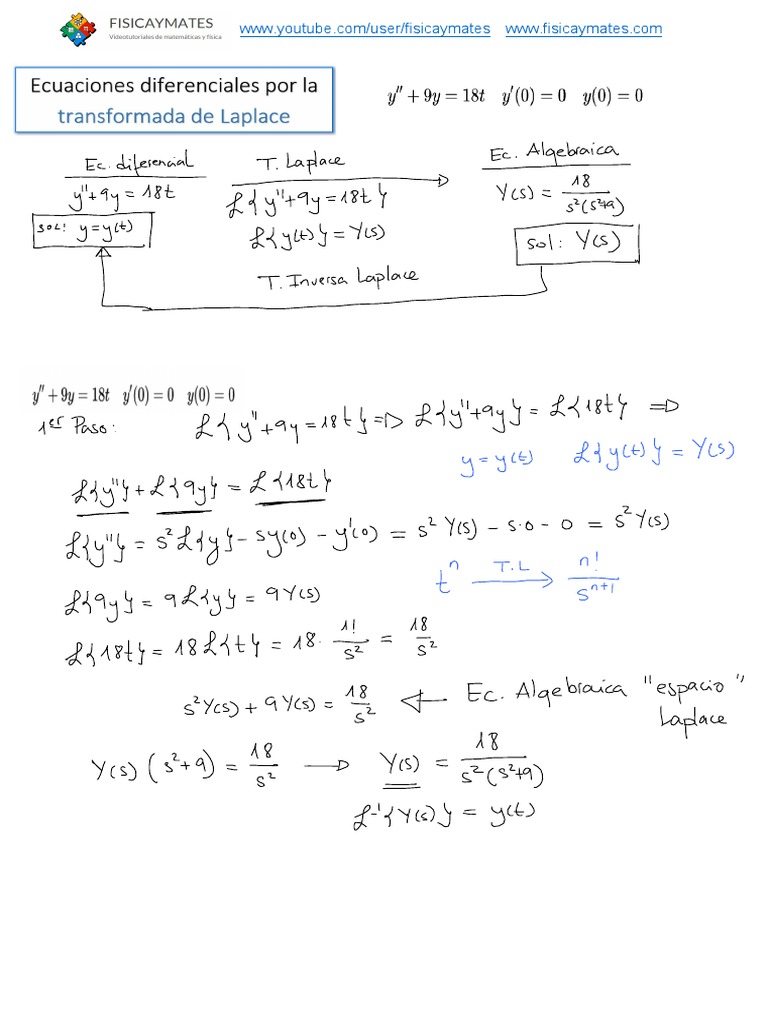 FISICAYMATES
Videotutoriales de matemáticas y física
www.youtube.com/user/fisicaymates www.fisicaymates.com
Ecuaciones diferenciales por la
transformada de Laplace
y'' + 9y = 18t y'(0) = 0 y(0) = 0
Ec. diferencial T. Laplace Ec. Algebraica
y''+9y = 18t ℒ{y''+9y = 18t} Y(s) = 18/(s²(s²+9))
sol: y = y(t) ℒ{y(t)} = Y(s) sol: Y(s)
T. Inversa Laplace
y'' + 9y = 18t y'(0) = 0 y(0) = 0
1er Paso: ℒ{y''+9y = 18t} => ℒ{y''+9y} = ℒ{18t} =>
y = y(t) ℒ{y(t)} = Y(s)
ℒ{y''} + ℒ{9y} = ℒ{18t}
ℒ{y''} = s²ℒ{y} - sy(0) - y'(0) = s² Y(s) - s·0 - 0 = s² Y(s)
tⁿ T.L → n!/sⁿ⁺¹
ℒ{9y} = 9ℒ{y} = 9Y(s)
ℒ{18t} = 18ℒ{t} = 18· 1!/s² = 18/s²
s²Y(s) + 9Y(s) = 18/s² ← Ec. Algebraica "espacio"
Laplace
Y(s) (s²+9) = 18/s² → Y(s) = 18/(s²(s²+9))
ℒ⁻¹{Y(s)} = y(t)